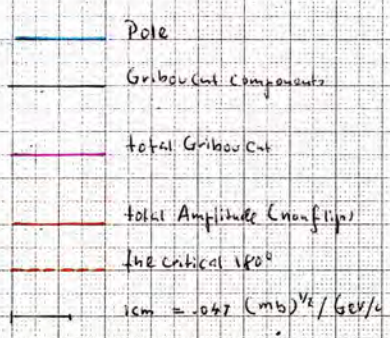 Pole
Gribov Cut Components
total Gribov Cut
total Amplitude (nonflip)
the critical 180°
1cm = .047 (mb)^1/2 / GeV/c